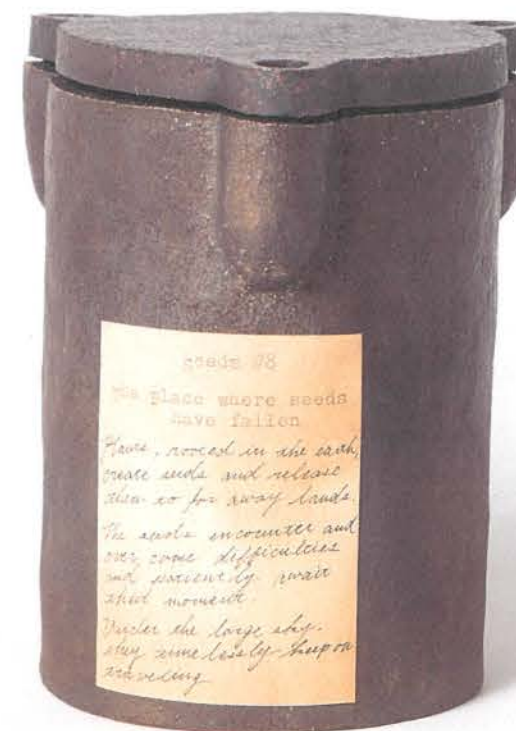 seeds #8
the place where seeds
have fallen
Plants, rooted in the earth,
create seeds and release
them to far away lands.
The seeds encounter and
over come difficulties
and patiently await
their moment.
Under the large sky,
they timelessly keep on
traveling